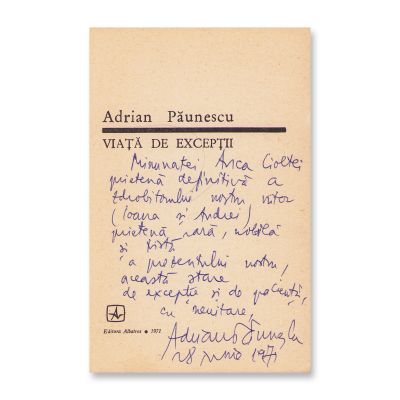 Adrian Păunescu
VIAȚĂ DE EXCEPȚII
Minunatei Anca Cioltei
prietenă definitivă a
zdrobitorului nostru viitor
(Ioana și Andrei)
prietenă rară, nobilă
și tristă
a prezentului nostru,
această stare
de excepție și de paciență,
cu neuitare,
Editura Albatros • 1971
28 iunie 1971